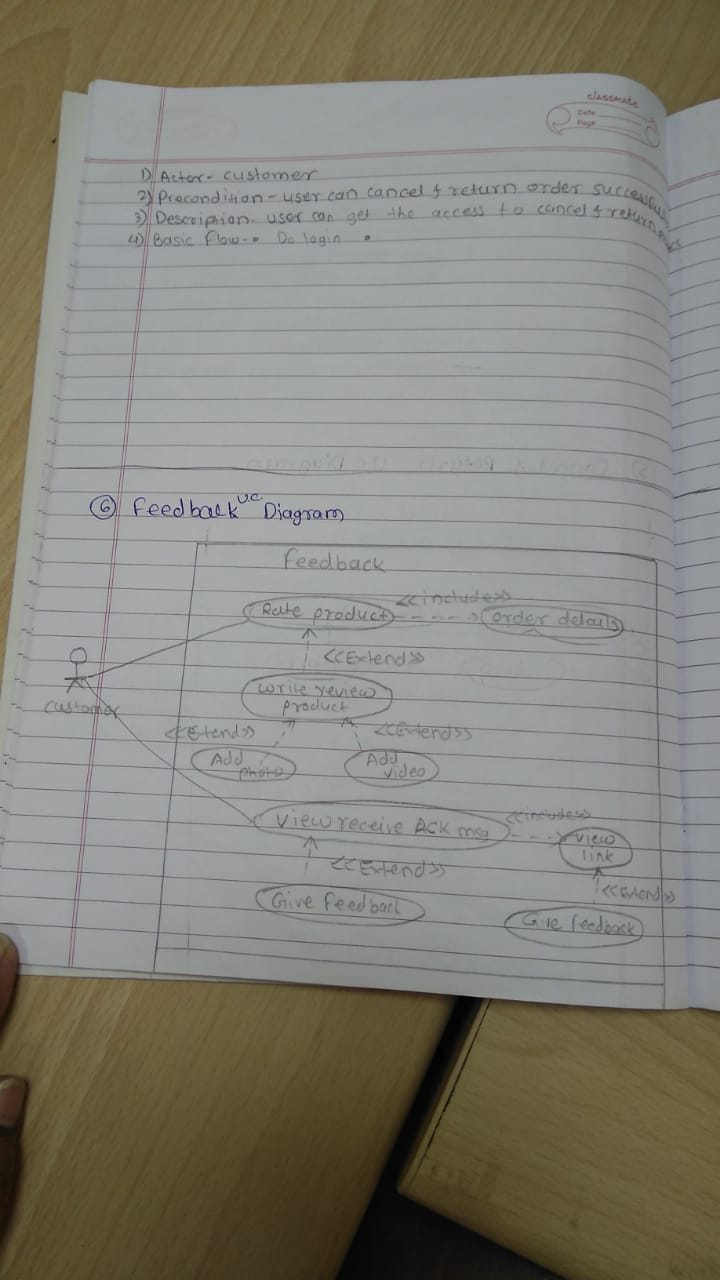 classmate
Date
Page
1) Actor - customer
2) Precondition - user can cancel & return order successfu
3) Description - user can get the access to cancel & return
4) Basic flow - Do login
⑥ Feedback U.C. Diagram
Feedback
Rate product <<includes>> order details
<<Extend>>
customer
write review
product
<<Etend>> <<Extend>>
Add photo
Add video
View receive ACK msg <<includes>> view link
<<Extend>> <<Extend>>
Give feedback Give feedback